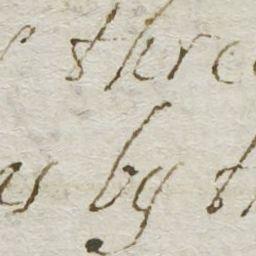 three
as by th